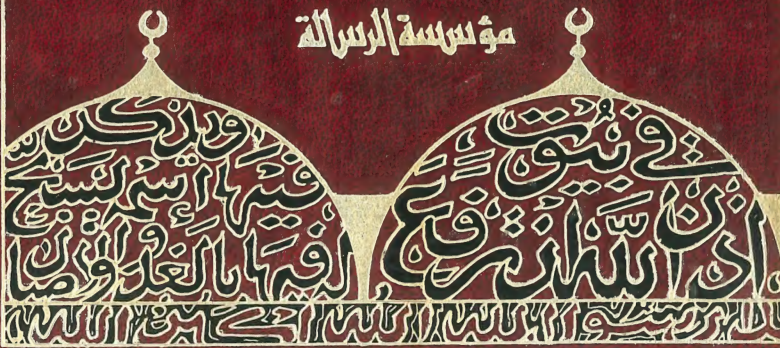 مؤسسة الرسالة
في بُيُوت
اذن الله ان ترفع
ويذكر
فيها إسمه يسبح
له فيها بالغدو والاصال